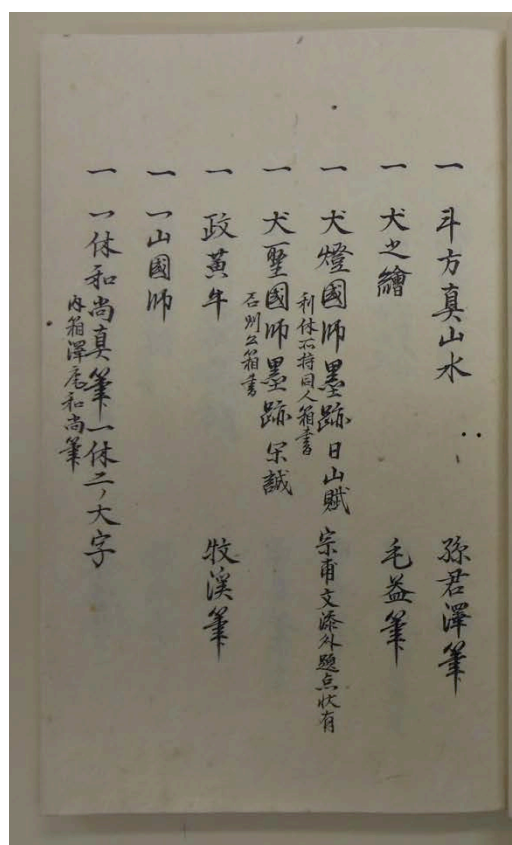 一 斗方真山水 孫君澤筆
一 犬之繪 毛益筆
一 犬燈國師墨跡 日山賦 宗甫文添外題点状有
利休所持同人箱書
一 犬聖國師墨跡 宋誠
石州公箱書
一 政黄牛 牧溪筆
一 一山國師
一 一休和尚真筆一休二ノ大字
内箱澤庵和尚筆